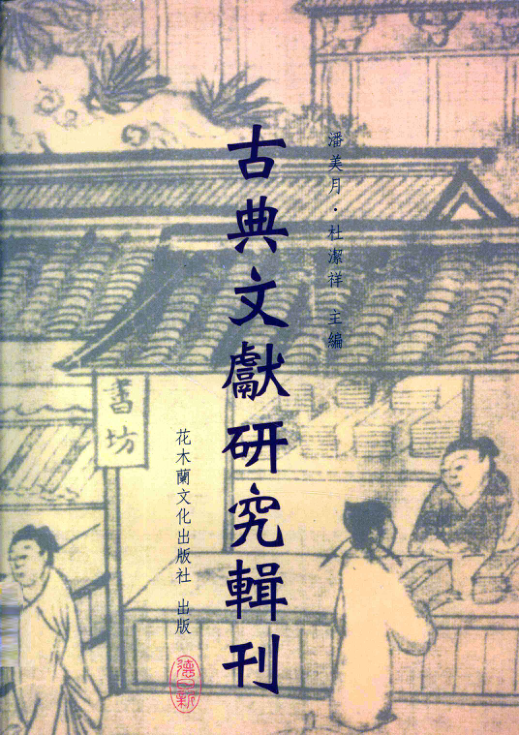 潘美月・杜潔祥 主編
古典文獻研究輯刊
花木蘭文化出版社 出版
書坊